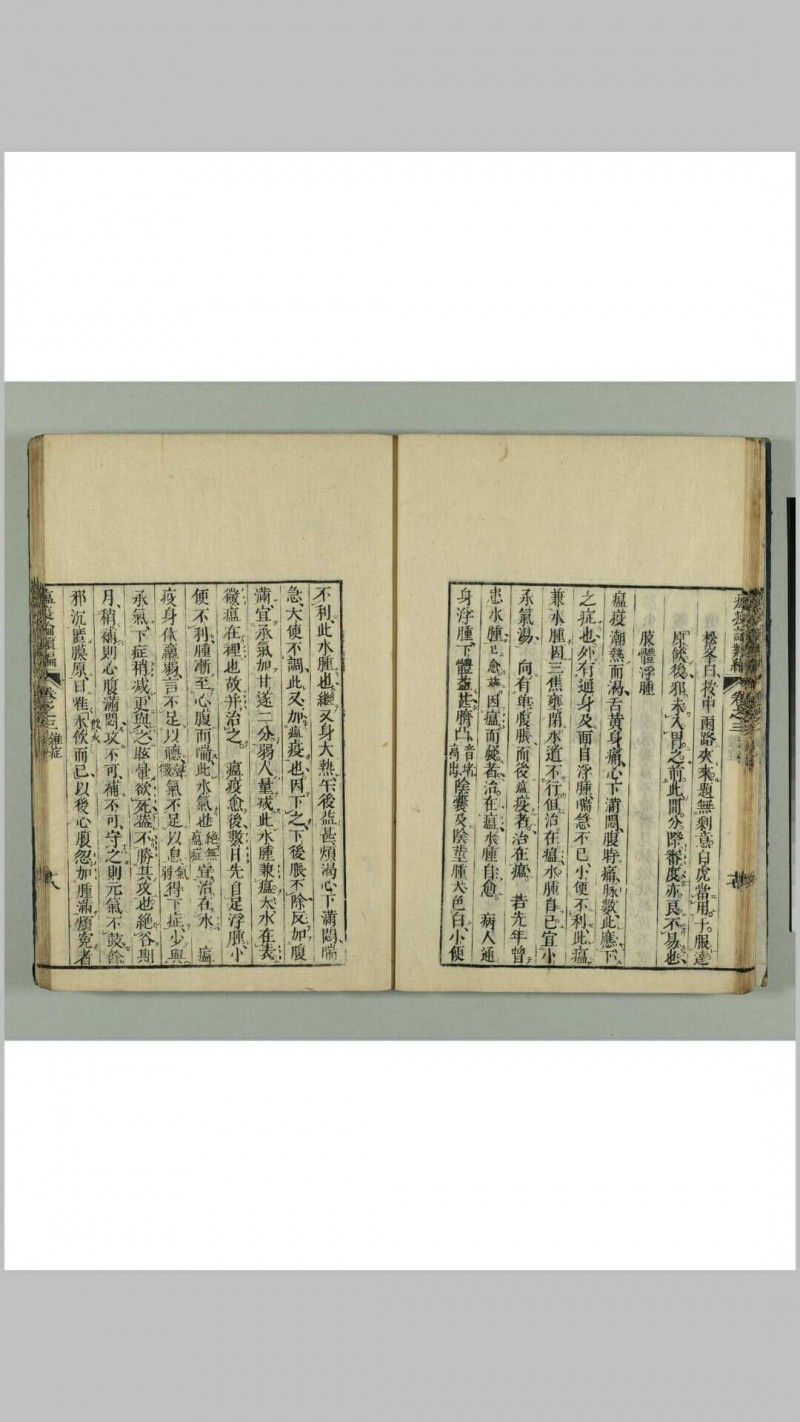 瘟疫論類編 卷之三
松峯曰按中兩路夾來題無剩意白虎當用于服達
原飲後邪未入胃之前此間分際審度亦良不易也
肢體浮腫
瘟疫潮熱而渴舌黃身痛心下滿悶腹時痛脉數此應下
之症也外有通身及面目浮腫喘急不已小便不利此瘟
兼水腫因三焦壅閉水道不行但治在瘟水腫自已宜小
承氣湯 向有单腹脹而後瘟疫者治在瘟 若先年曾
患水腫已愈因瘟而發者治在瘟水腫自愈 病人通
身浮腫下體益甚臍凸音堵高出陰囊及陰莖腫大色白小便
不利此水腫也繼又身大熱午後益甚煩渴心下滿悶喘
急大便不調此又加瘟疫也因下之下後脹不除反加腹
滿宜承氣加甘遂二分弱人量減此水腫兼瘟大水在表
微瘟在裡也故并治之 瘟疫愈後數日先自足浮腫小
便不利腫漸至心腹而喘此水氣也絶無瘟症宜治在水 瘟
疫身体羸弱言不足以聽氣不足以息氣弱得下症少與
承氣下症稍減更與之眩暈欲死蓋不勝其攻也絶谷期
月稍補則心腹滿悶攻不可補不可守之則元氣不鼓餘
邪沉匿膜原日惟水飲而已以後心腹忽加腫滿煩寃者
瘟疫論類編 卷之三 雜症 八